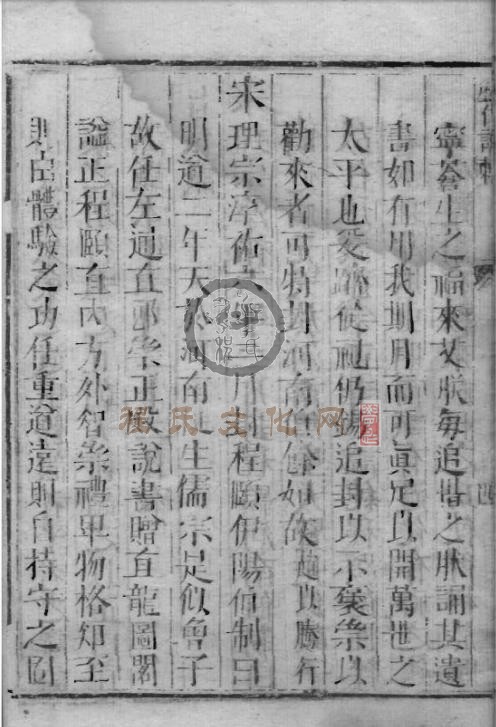 寧蒼生之福來艾朕每追惜之朕誦其遺
書如有用我期月而可真足以開萬世之
太平也爰躋從祀仍錫追封以示褒崇以
勸來者可特封河南伯餘如故趙以騰行
宋理宗淳佑六年三月封程頤伊陽伯制曰
明道二年天於河南生儒宗足似魯子
故任左通直郎崇正殿說書贈直龍圖閣
謚正程頤直內方外智崇禮卑物格知至
則臣體驗之功任重道遠則自持守之固
程氏文化网